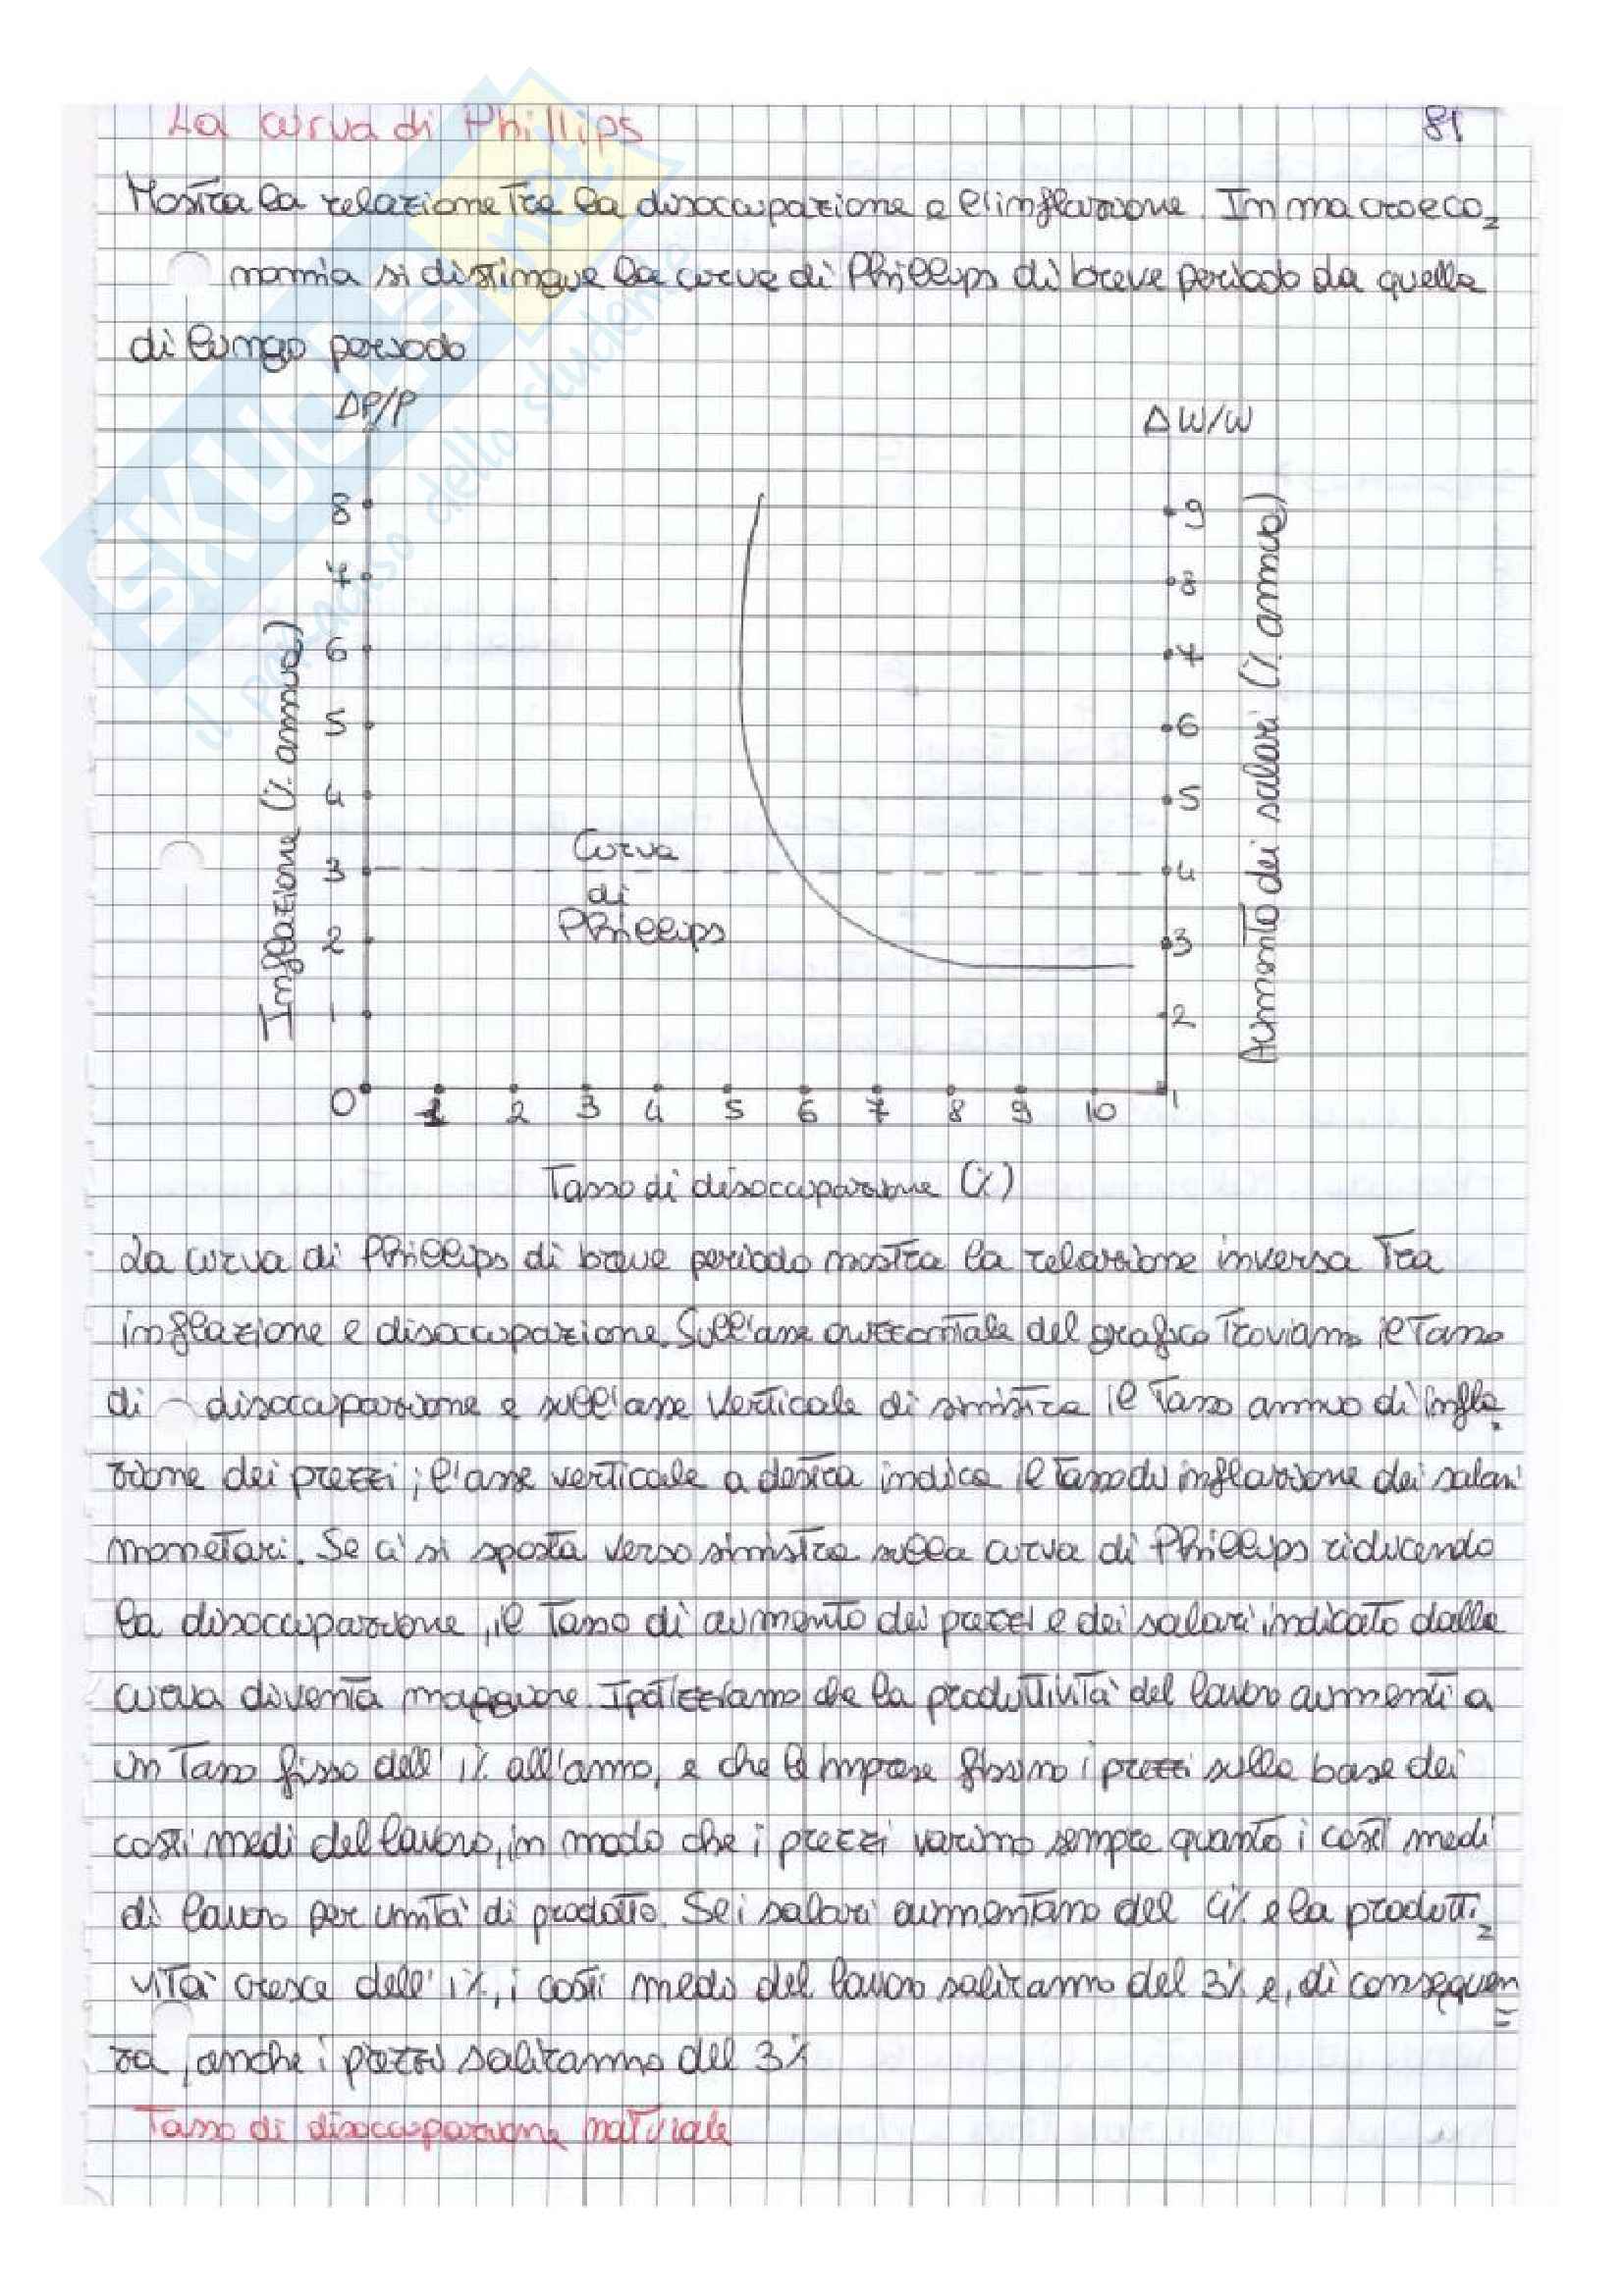 La curva di Phillips
81
Mostra la relazione tra la disoccupazione e l'inflazione. In macroeco=
nomia si distingue la curva di Phillips di breve periodo da quella
di lungo periodo
ΔP/P
ΔW/W
8
7
6
5
4
3
2
1
0
Inflazione (% annua)
Curva
di
Phillips
9
8
7
6
5
4
3
2
1
Aumento dei salari (% annuo)
1 2 3 4 5 6 7 8 9 10
Tasso di disoccupazione (%)
La curva di Phillips di breve periodo mostra la relazione inversa tra
inflazione e disoccupazione. Sull'asse orizzontale del grafico troviamo il tasso
di disoccupazione e sull'asse verticale di sinistra il tasso annuo di infla=
zione dei prezzi; l'asse verticale a destra indica il tasso di inflazione dei salari
monetari. Se ci si sposta verso sinistra sulla curva di Phillips riducendo
la disoccupazione, il tasso di aumento dei prezzi e dei salari indicato dalla
curva diventa maggiore. Ipotizziamo che la produttività del lavoro aumenti a
un tasso fisso dell'1% all'anno, e che le imprese fissino i prezzi sulla base dei
costi medi del lavoro, in modo che i prezzi varino sempre quanto i costi medi
di lavoro per unità di prodotto. Se i salari aumentano del 4% e la produtti=
vità cresce dell'1%, i costi medi del lavoro saliranno del 3% e, di conseguen=
za, anche i prezzi saliranno del 3%
Tasso di disoccupazione naturale
SKUOLA.net
il paradiso dello studente